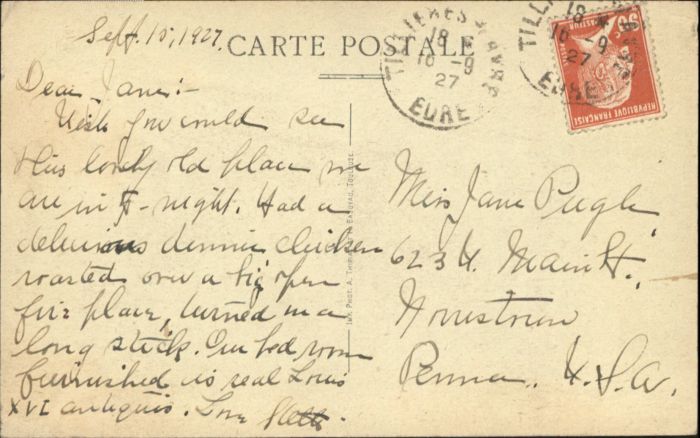 Sept. 15, 1927.
CARTE POSTALE
Dear Jane:-
Wish you could see
this lovely old place we
are in to-night. Had a
delicious dinner chicken
roasted over a big open
fire place, turned on a
long stick. Our bed room
furnished is real Louis
XVI antiques. Love
Miss Jane
623 W. Main St.,
Norristown
Penna. U.S.A.
TILLIÈRES S/ AVRE
18
16 -9
27
EURE
TILLI
18
16 -9
27
EURE
REPUBLIQUE FRANÇAISE